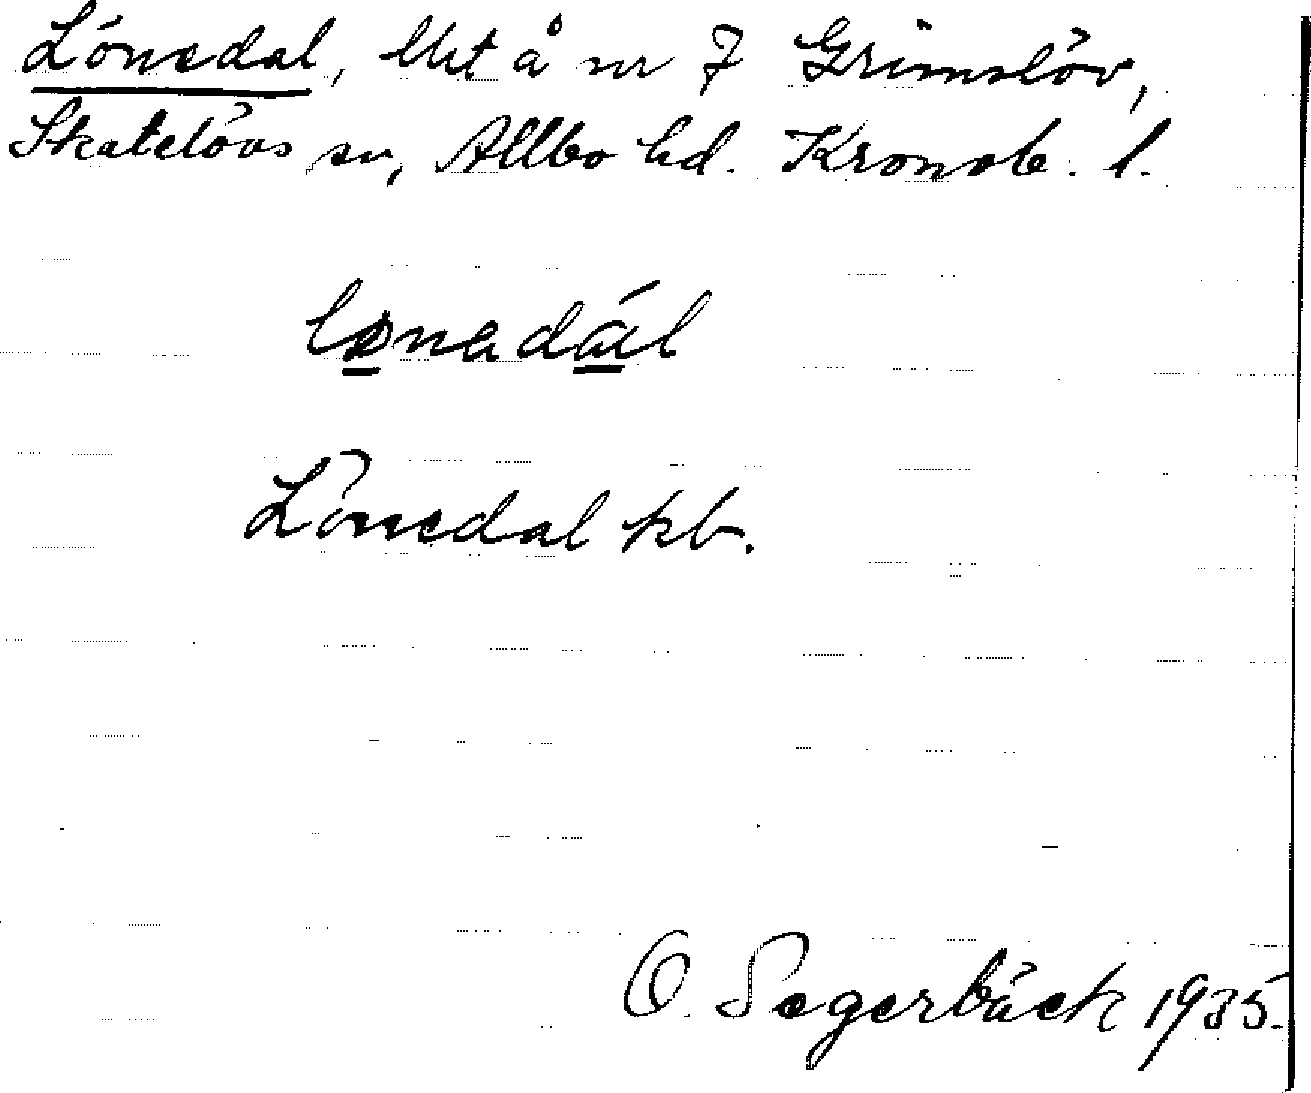 Lönedal, lht å nr 7 Grimslöv,
Skatelövs sn, Allbo hd. Kronob. l.
lønadál
Lönedal kb.
O. Segerbäck 1935.